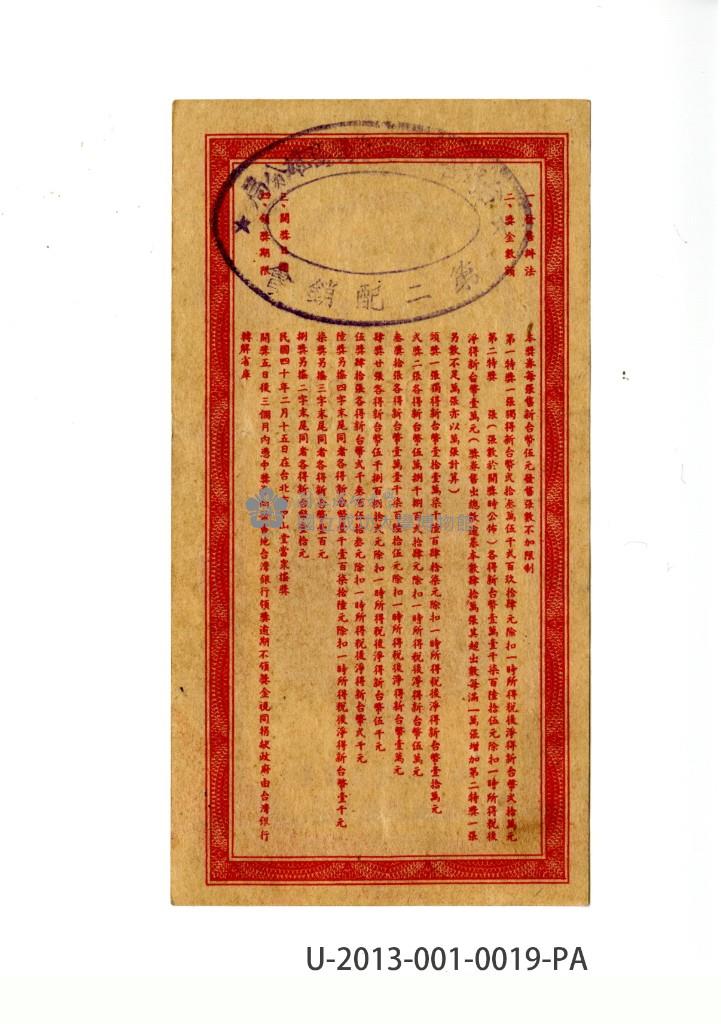 一、發售辦法
本獎券每張售新台幣伍元發售張數不加限制
二、獎金數額
第一特獎一張獨得新台幣弍拾叁萬伍千弍百玖拾肆元除扣一時所得稅後淨得新台幣弍拾萬元
第二特獎　張(張數於開獎時公佈)各得新台幣壹萬壹千柒百陸拾伍元除扣一時所得稅後
淨得新台幣壹萬元(獎券售出總數逾基本數肆拾萬張其超出數每滿一萬張增加第二特獎一張
另數不足萬張亦以萬張計算)
頭獎一張獨得新台幣壹拾壹萬柒千百肆拾柒元除扣一時所得稅後淨得新台幣壹拾萬元
弍獎二張各得新台幣伍萬捌千捌百拾肆元除扣一時所得稅後淨得新台幣伍萬元
叁獎拾張各得新台幣壹萬壹千柒百陸拾伍元除扣一時所得稅後淨得新台幣壹萬元
肆獎廿張各得新台幣伍千捌百捌拾元除扣一時所得稅後淨得新台幣伍千元
伍獎肆拾張各得新台幣弍千叁百伍拾叁元除扣一時所得稅後淨得新台幣弍千元
陸獎另搖四字末尾同者各得新台幣壹千壹百柒拾陸元除扣一時所得稅後淨得新台幣壹千元
柒獎另搖三字末尾同者各得新台幣壹百元
捌獎另搖二字末尾同者各得新台幣壹拾元
三、開獎日期
民國四十年二月十五日在台北市中山堂當衆搖獎
四、領獎期限
開獎五日後三個月內憑中獎券向當地台灣銀行領獎逾期不領獎金視同捐献政府由台灣銀行
轉解省庫
分局
第二配銷會
國立政治大學博物館
U-2013-001-0019-PA